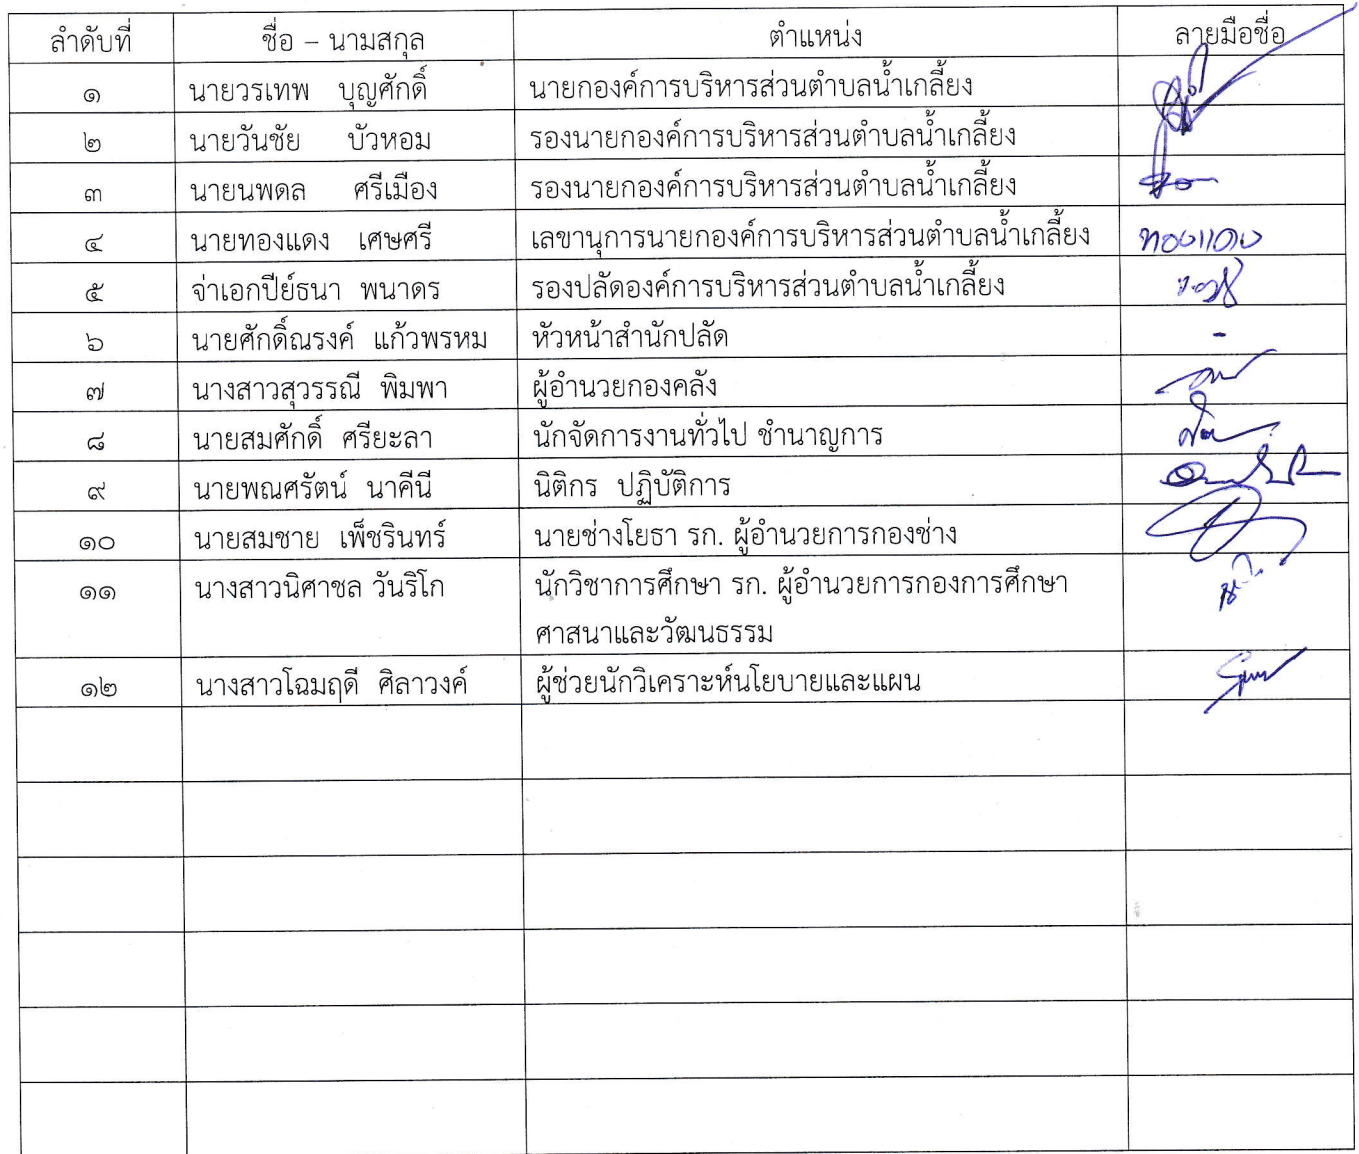 ลำดับที่ ชื่อ – นามสกุล ตำแหน่ง ลายมือชื่อ
๑ นายวรเทพ บุญศักดิ์ นายกองค์การบริหารส่วนตำบลน้ำเกลี้ยง
๒ นายวันชัย บัวหอม รองนายกองค์การบริหารส่วนตำบลน้ำเกลี้ยง
๓ นายนพดล ศรีเมือง รองนายกองค์การบริหารส่วนตำบลน้ำเกลี้ยง
๔ นายทองแดง เศษศรี เลขานุการนายกองค์การบริหารส่วนตำบลน้ำเกลี้ยง ทองแดง
๕ จ่าเอกปีย์ธนา พนาดร รองปลัดองค์การบริหารส่วนตำบลน้ำเกลี้ยง
๖ นายศักดิ์ณรงค์ แก้วพรหม หัวหน้าสำนักปลัด -
๗ นางสาวสุวรรณี พิมพา ผู้อำนวยกองคลัง
๘ นายสมศักดิ์ ศรียะลา นักจัดการงานทั่วไป ชำนาญการ
๙ นายพณศรัตน์ นาคีนี นิติกร ปฏิบัติการ
๑๐ นายสมชาย เพ็ชรินทร์ นายช่างโยธา รก. ผู้อำนวยการกองช่าง
๑๑ นางสาวนิศาชล วันริโก นักวิชาการศึกษา รก. ผู้อำนวยการกองการศึกษา
ศาสนาและวัฒนธรรม
๑๒ นางสาวโฉมฤดี ศิลาวงค์ ผู้ช่วยนักวิเคราะห์นโยบายและแผน